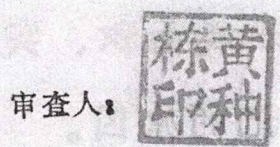 审查人：
黄种栋印